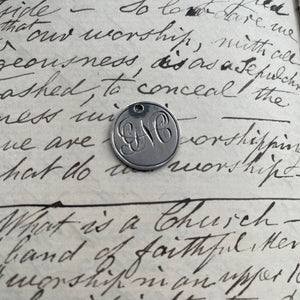 side - So
that our worship, with all
geousness, is as a Sepulchre
ashed, to conceal the
ness
GNC
we are worshipping
hat do we worship
What is a Church -
band of faithful
worship in an upper